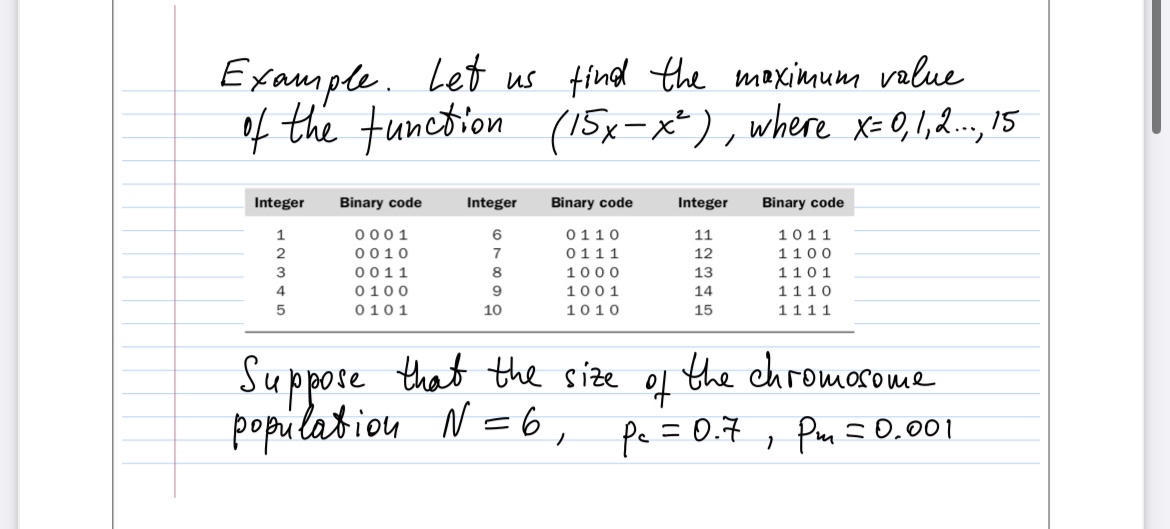 Example. Let us find the maximum value
of the function (15x-x²), where x=0,1,2...,15
Integer Binary code Integer Binary code Integer Binary code
1 0 0 0 1 6 0 1 1 0 11 1 0 1 1
2 0 0 1 0 7 0 1 1 1 12 1 1 0 0
3 0 0 1 1 8 1 0 0 0 13 1 1 0 1
4 0 1 0 0 9 1 0 0 1 14 1 1 1 0
5 0 1 0 1 10 1 0 1 0 15 1 1 1 1
Suppose that the size of the chromosome
population N = 6, pc = 0.7, pm = 0.001